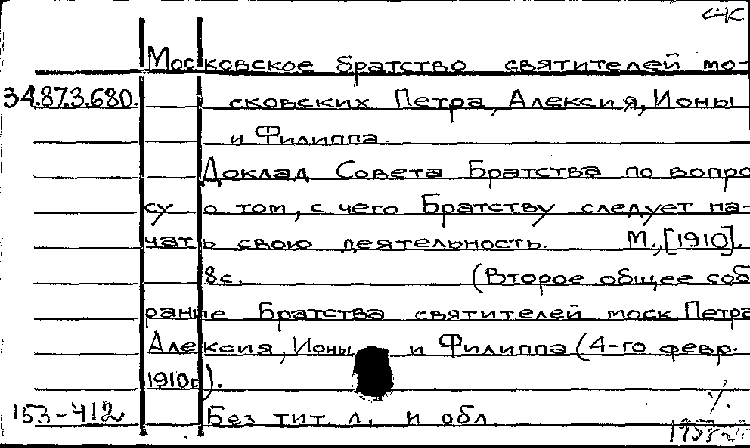 СК
Московское братство святителей мо-
34.873.680. сковских Петра, Алексия, Ионы
и Филиппа
Доклад Совета Братства по вопро
су о том, с чего Братству следует на-
чать свою деятельность. М.,[1910].
8с. (Второе общее соб
рание Братства святителей моск Петра
Алексия, Ионы и Филиппа (4-го февр.
1910г).
153-412 Без тит. л. и обл.